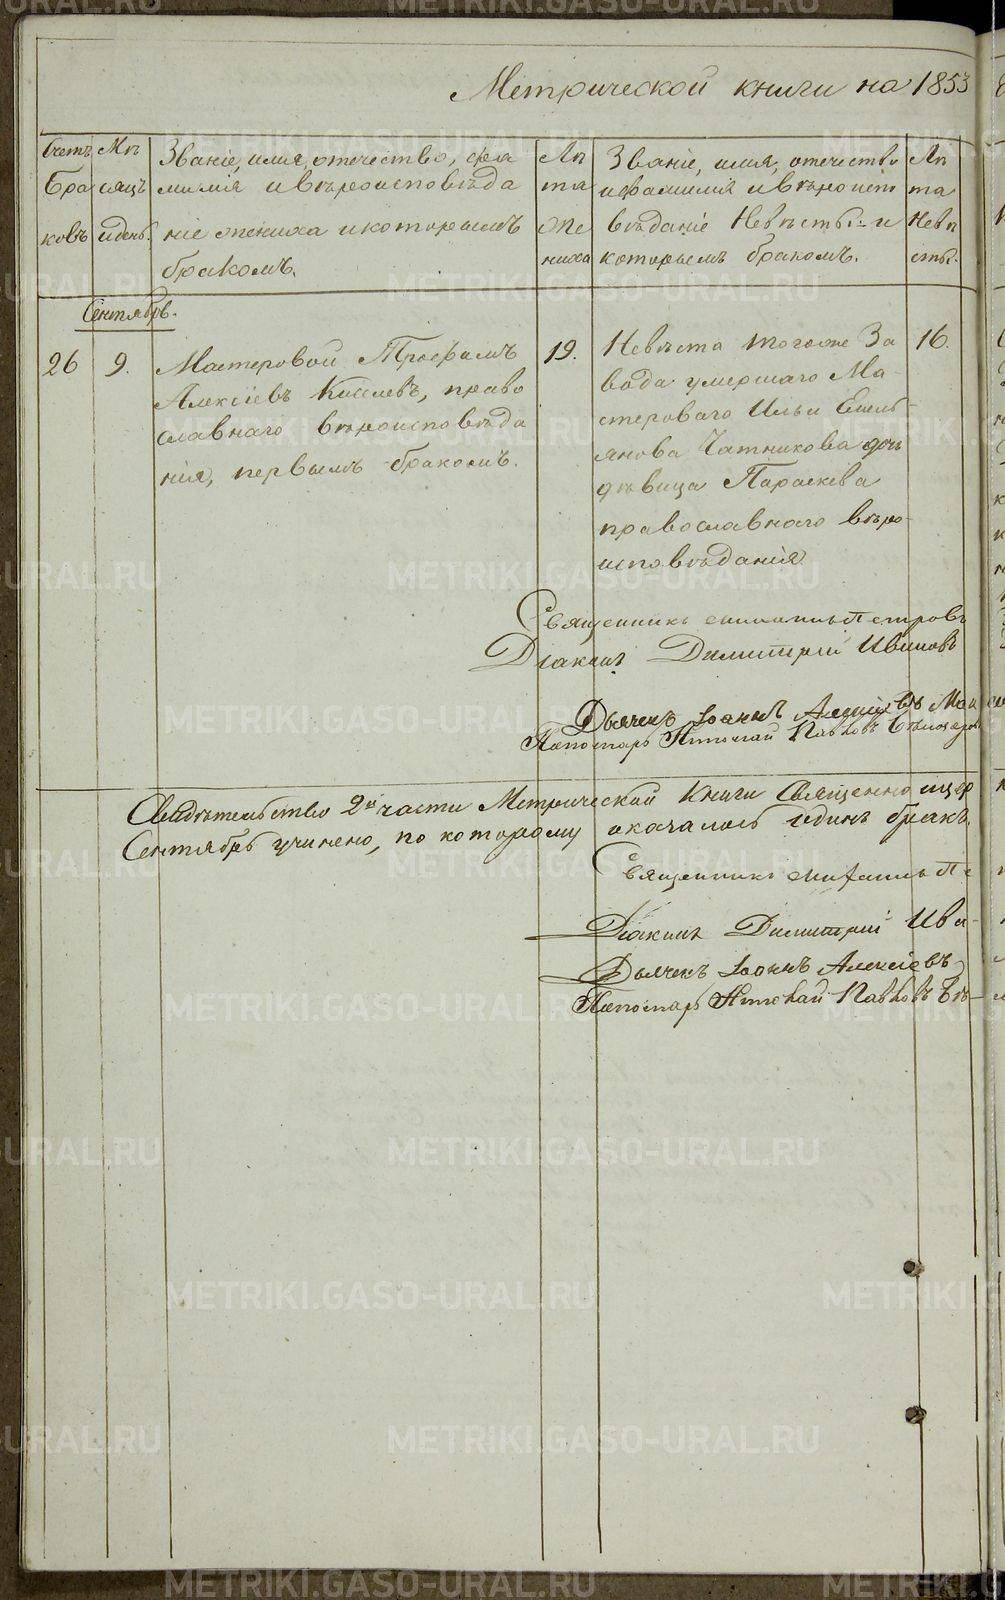 Метрической книги на 1853
Счетъ
Бра
ковъ
Мѣ
сяцъ
и день.
Званіе, имя, отечество, фа
милія и вѣроисповѣда
ніе жениха и которымъ
бракомъ.
Лѣ
та
же
ниха
Званіе, имя, отечество
и фамилія и вѣроисп
вѣданіе Невѣсты и
которымъ бракомъ.
Лѣ
та
Невѣ
сты.
Сентябрь.
26
9.
Мастеровой Трофимъ
Алексіевъ Киселевъ, право
славнаго вѣроисповѣда
нія, первымъ бракомъ.
19.
Невѣста того же За
вода умершаго Ма-
стероваго Ильи Емель-
янова Чатникова дочь
дѣвица Параскева
православнаго вѣро-
исповѣданія
16.
Священникъ Петровъ
Діаконъ Димитрій Ивановъ
Дьячекъ Іоаннъ
Пономарь Николай Павловъ
Свидѣтельство 2й части Метрической Книги Священно
Сентябрь учинено, по которому оказалось одинъ бракъ.
Священникъ Михаилъ Пе
Діаконъ Димитрій Ива-
Дьячекъ Іоаннъ Алексіевъ
Пономарь Николай Павловъ Бѣ-